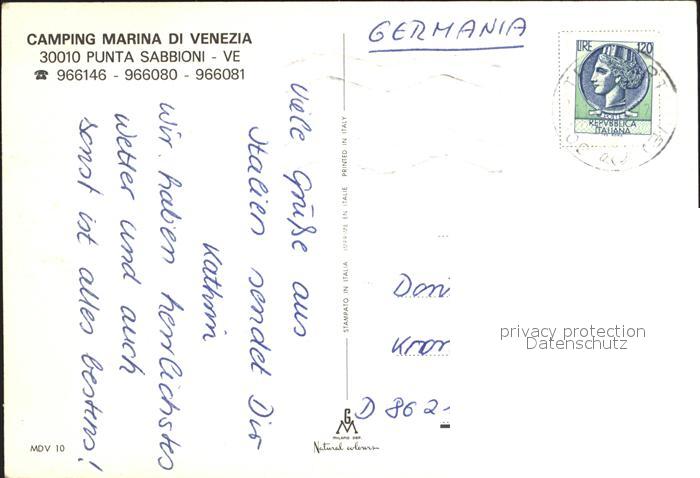 CAMPING MARINA DI VENEZIA
30010 PUNTA SABBIONI - VE
☎ 966146 - 966080 - 966081
Viele Grüße aus
Italien sendet Dir
Kathrin
Wir haben herrlichstes
Wetter und auch
sonst ist alles bestens!
MDV 10
STAMPATO IN ITALIA IMPRIMÉ EN ITALIE PRINTED IN ITALY
GM
MILANO DEP.
Natural colours
GERMANIA
LIRE 120
REPVBBLICA
ITALIANA
Dori
D 862-
privacy protection
Datenschutz